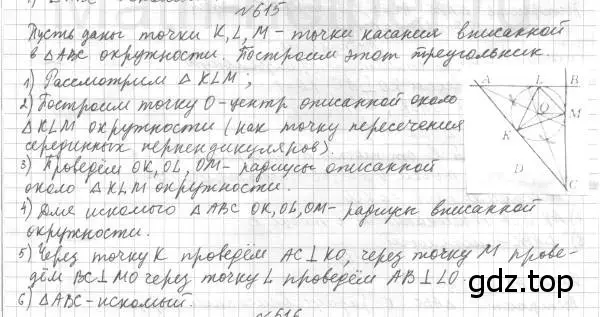 №615
Пусть даны точки K, L, M - точки касания вписанной
в △ABC окружности. Построим этот треугольник.
1) Рассмотрим △KLM;
2) Построим точку O-центр описанной около
△KLM окружности (как точку пересечения
серединных перпендикуляров).
3) Проведём OK, OL, OM- радиусы описанной
около △KLM окружности.
4) Для искомого △ABC OK, OL, OM- радиусы вписанной
окружности.
5) Через точку K проведём AC⊥KO, через точку M прове-
дём BC⊥MO через точку L проведём AB⊥LO
6) △ABC-искомый.
A L B
O M
K
D
C
gdz.top
№616